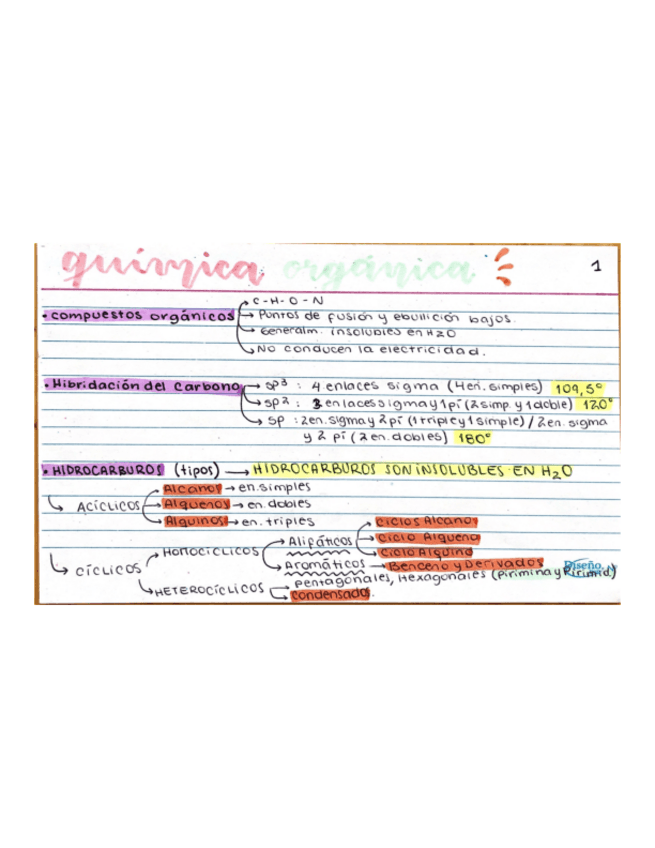 química orgánica 1
C-H-O-N
• compuestos orgánicos → Puntos de fusión y ebullición bajos.
→ Generalm. insolubles en H2O
→ No conducen la electricidad.
• Hibridación del Carbono → sp3 : 4 enlaces sigma (4en. simples) 109,5°
→ sp2 : 3 enlaces sigma y 1 pí (2 simp. y 1 doble) 120°
→ sp : 2en. sigma y 2 pí (1 triple y 1 simple) / 2en. sigma
y 2 pí (2 en. dobles) 180°
• HIDROCARBUROS (tipos) → HIDROCARBUROS SON INSOLUBLES EN H2O
Alcanos → en. simples
ACÍCLICOS Alquenos → en. dobles
Alquinos → en. triples
ciclos Alcano
Alifáticos ciclo Alqueno
Homocíclicos ciclo Alquino
CÍCLICOS Aromáticos → Benceno y Derivados
Pentagonales, Hexagonales (Pirimina y
HETEROCÍCLICOS condensado.
Diseño